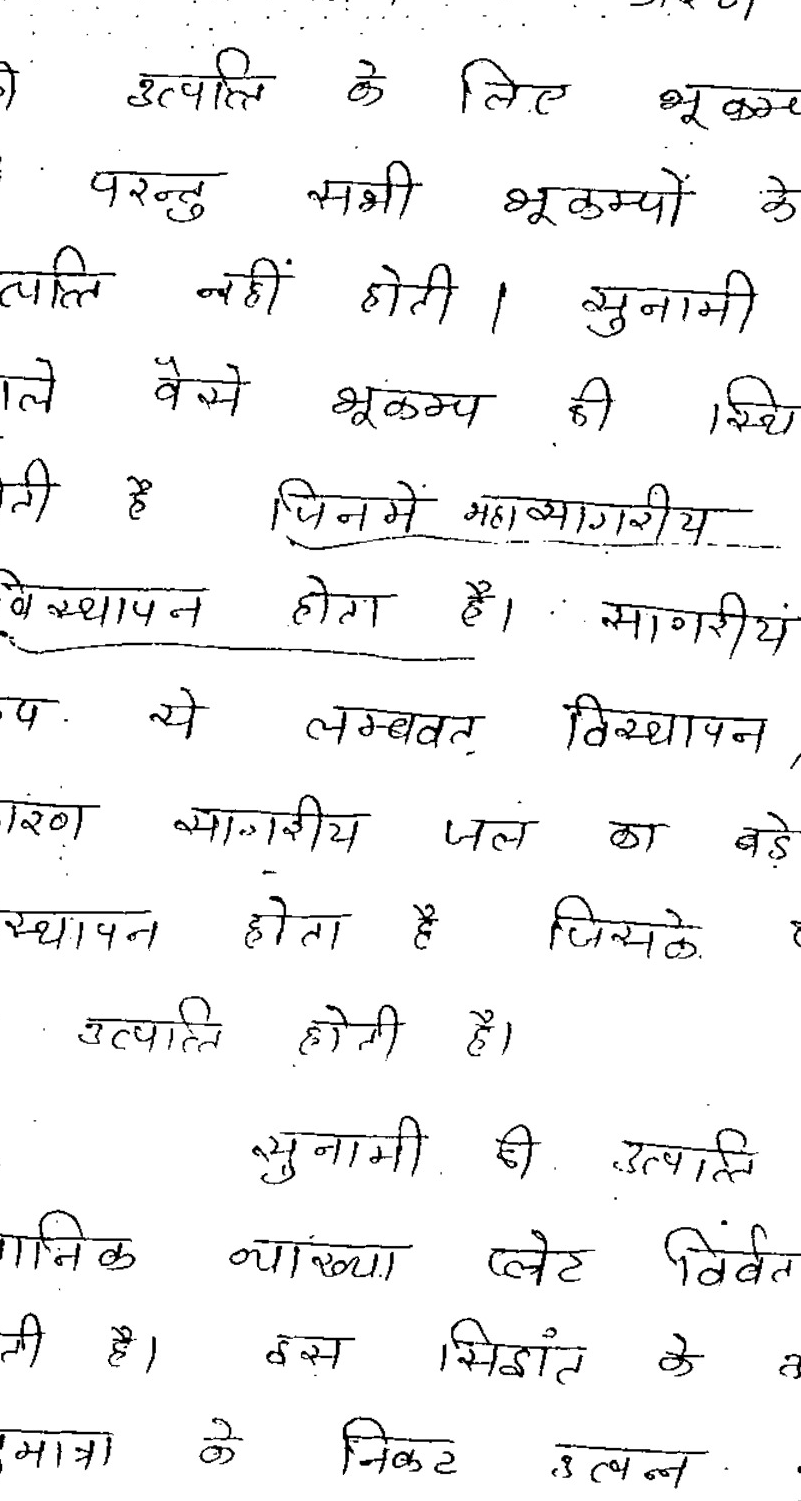 उत्पत्ति के लिए भूकम्प
परन्तु सभी भूकम्पों के
त्पत्ति नहीं होती । सुनामी
ले वैसे भूकम्प की स्थि
ती है जिनमें महासागरीय
विस्थापन होता है। सागरीय
रूप से लम्बवत विस्थापन,
ारण सागरीय जल का बड़े
स्थापन होता है जिसके
उत्पत्ति होती है।
सुनामी की उत्पत्ति
ानिक व्याख्या प्लेट विर्वत
ती है। इस सिद्धांत के
ुमात्रा के निकट उत्पन्न